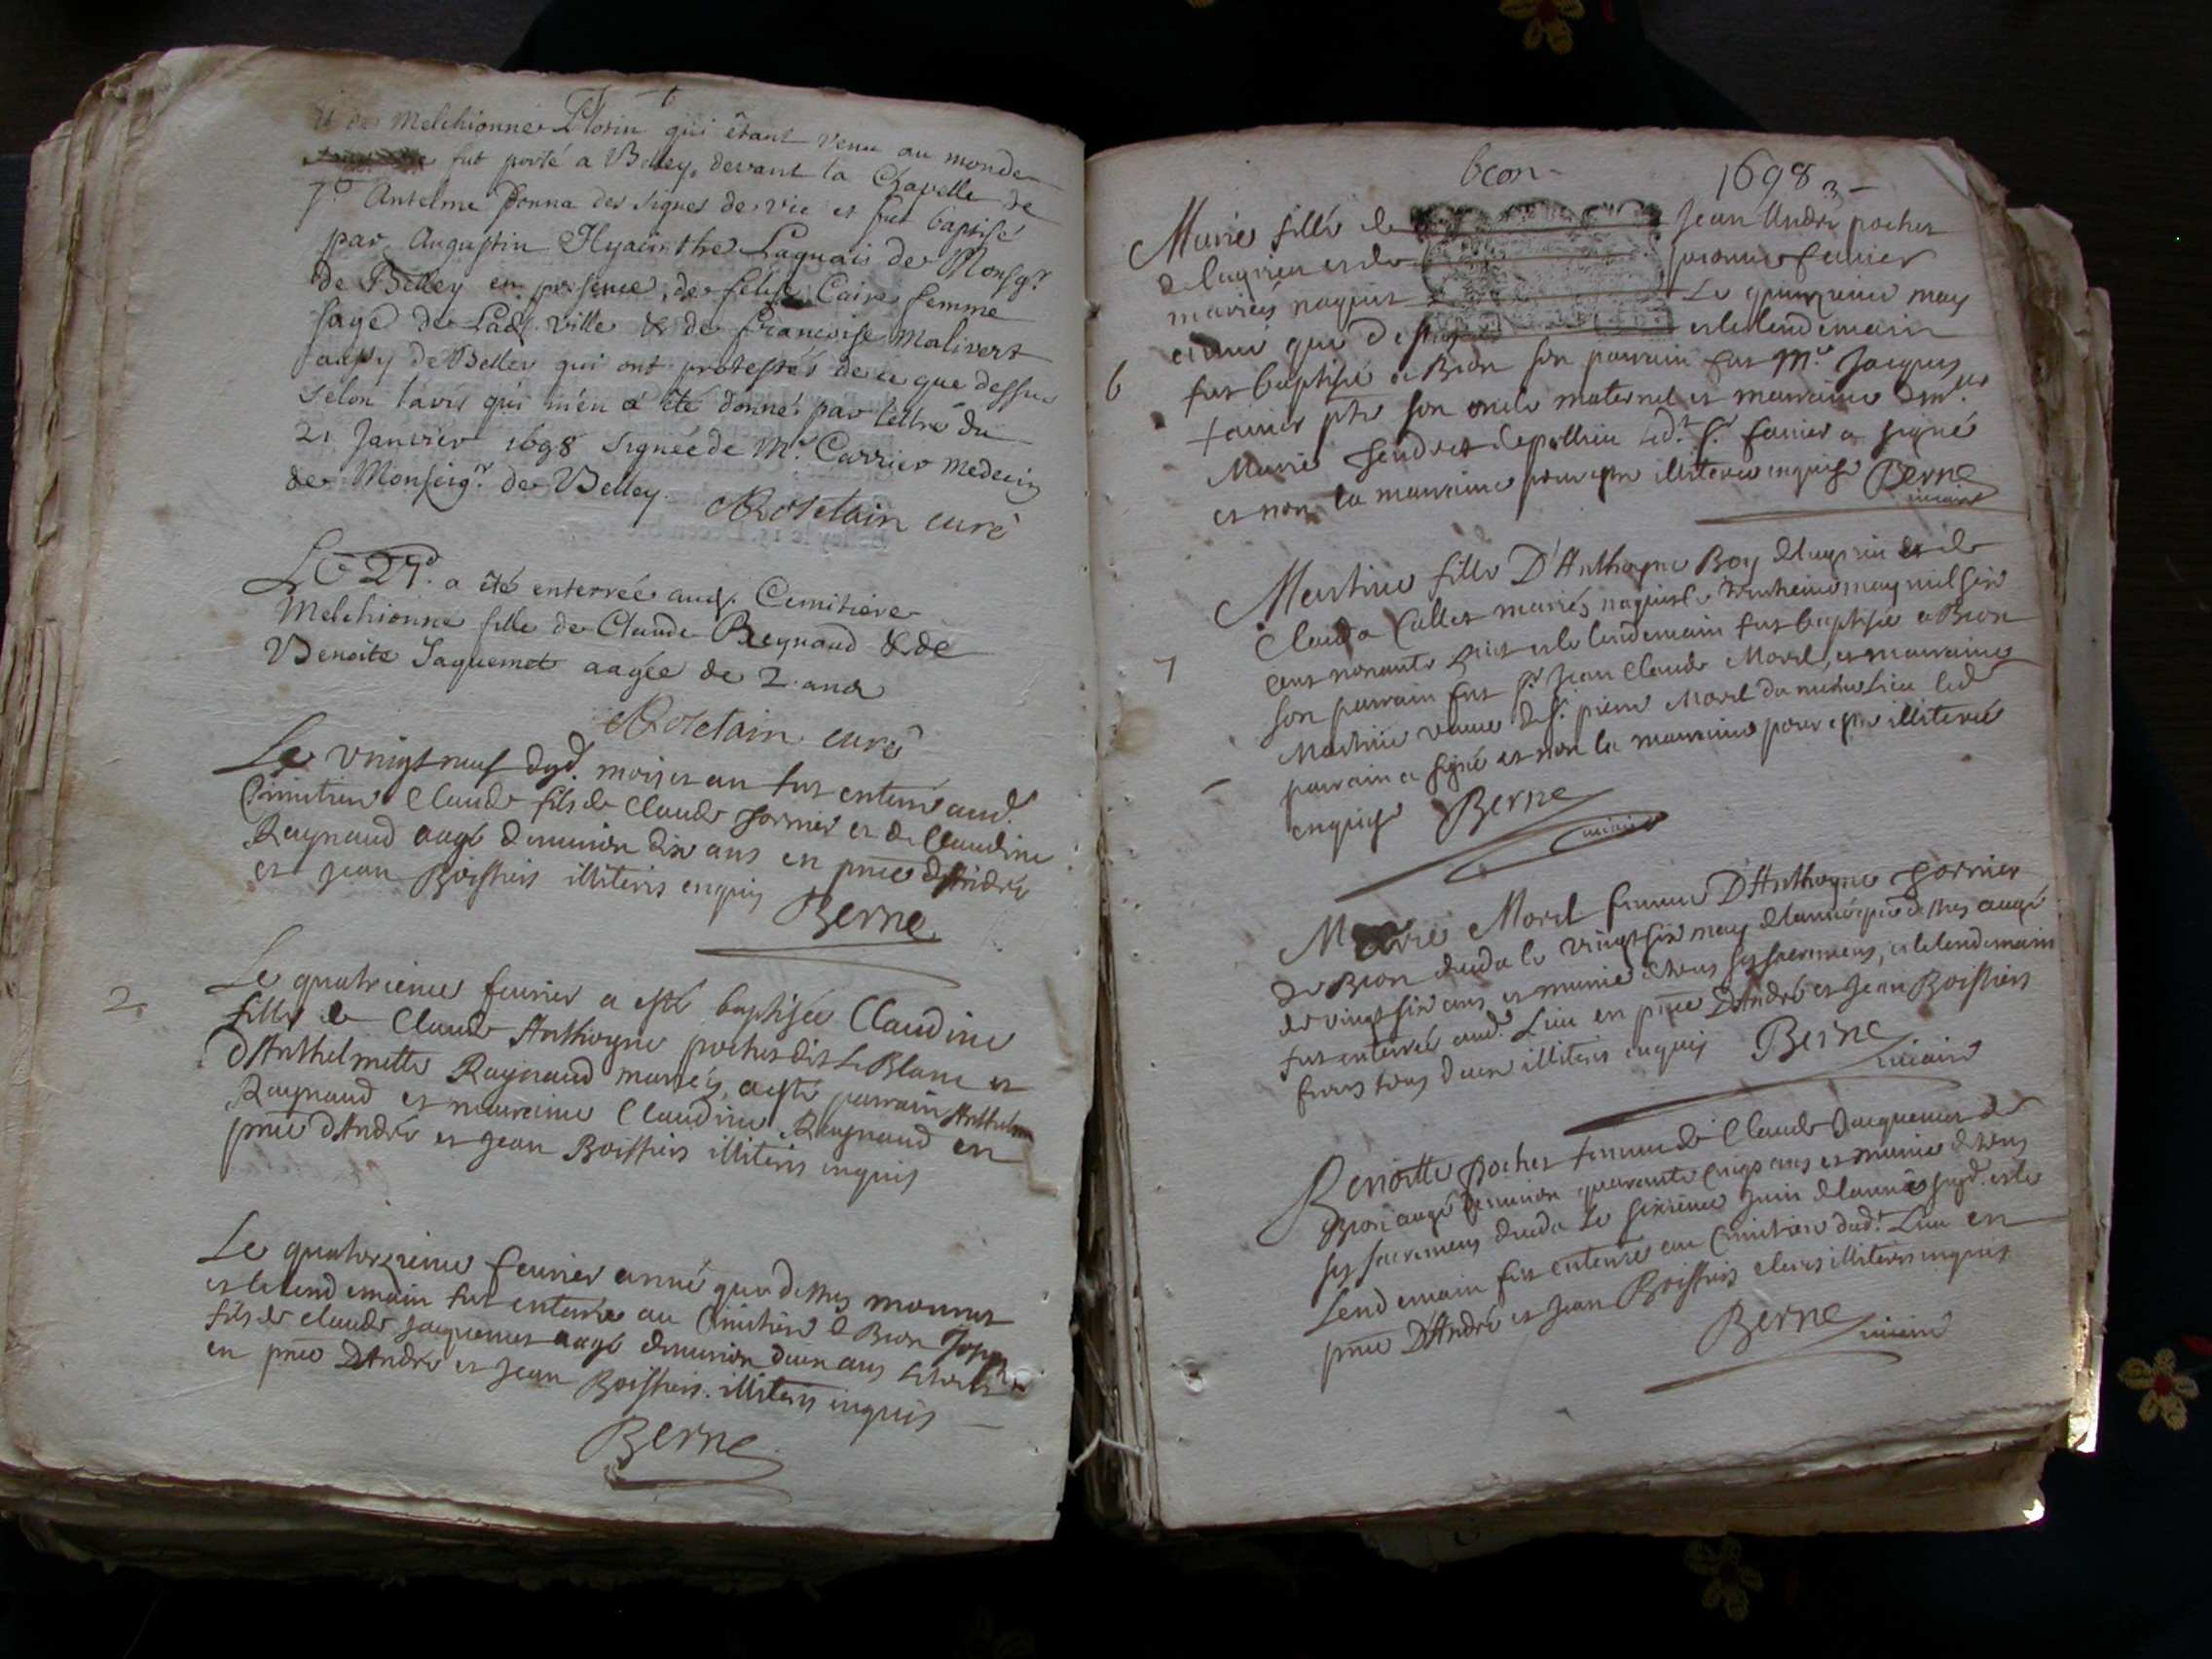 et de Melchionne Florin qui êtant venu au monde
fut porté a Belley, devant la Chapelle de
St. Antelme donna des signes de vie et fut baptisé
par Augustin Hyacinthe Laquais de Monsgr.
de Belley en presence de Caire femme
sage de Lad. ville & de francoise Malivert
aussy de Belley qui ont protestés de ce que dessus
selon l'avis qui m'en a êté donné par lettre du
21 Janvier 1698 Signée de Mr. Carrier Medecin
de Monseigr. de Belley.
Rostain curé
Le 27. a êté enterrée aud. Cimitiere
Melchionne fille de Claude Reynaud & de
Benoite Jaquemet aagée de 2 ans
Rostain curé
Le vingt neuf dud. mois et an fut enterré aud.
Cimitiere Claude fils de Claude Jornier et de Claudine
Raynaud aagé denviron dix ans en pnce d'André
et Jean Boissiers illiteris enquis
Berne
2
Le quatrieme fevrier a esté baptisée Claudine
fille de Claude Anthoyne pochet dit Le Blanc et
d'Anthelmette Raynaud mariés, a esté parrain Anthelme
Raynaud et marraine Claudine Raynaud en
pnce d'André et Jean Boissiers illiteris inquis
Le quatorzieme fevrier anné que dessus mourut
et le lendemain fut enterré au Cimitiere de Beon Joseph
fils de Claude Jaquemet aagé denviron deux ans
en pnce D'André et Jean Boissiers illiteris inquis
Berne
beon 1698 3
Marie fille de Jean André pochet
de lugrin et de favier
mariés naquit Le quinzieme may
anné que dessus et le lendemain
6
fut baptisée a Beon son parrain fut Mre Jacques
favier ptre son oncle maternel et marraine
Marie Ledt. Sr. favier a signé
et non la marraine pour estre illiterée enquise Berne
vicaire
Martine fille D'Anthoyne Boy de lugrin et de
Clauda Callet mariés naquit le may mil six
7
cent nonante huit et le lendemain fut baptisée a Beon
son parrain fut Sr Jean Claude Morel, et marraine
Martine veuve de Sr. pierre Morel du mesme Lieu led
parrain a signé et non la marraine pour estre illiterée
enquise Berne
vicaire
Marie Morel femme D'Anthoyne Jornier
de Beon deceda le vingt six may de lannée que dessus aagé
de vingt six ans et munie de tous ses sacremens, et le lendemain
fut enterrée aud. Lieu en pnce D'André et Jean Boissiers
freres tous deux illiteris enquis Berne
vicaire
Benoitte pochet femme de Claude Jacquemet de
Beon aagé denviron quarante cinq ans et munie de tous
ses sacremens deceda Le sixieme juin de lannée susd. et le
Lendemain fut enterré au Cimitiere dudt. Lieu en
pnce D'André et Jean Boissiers clercs illiteris inquis
Berne vicaire